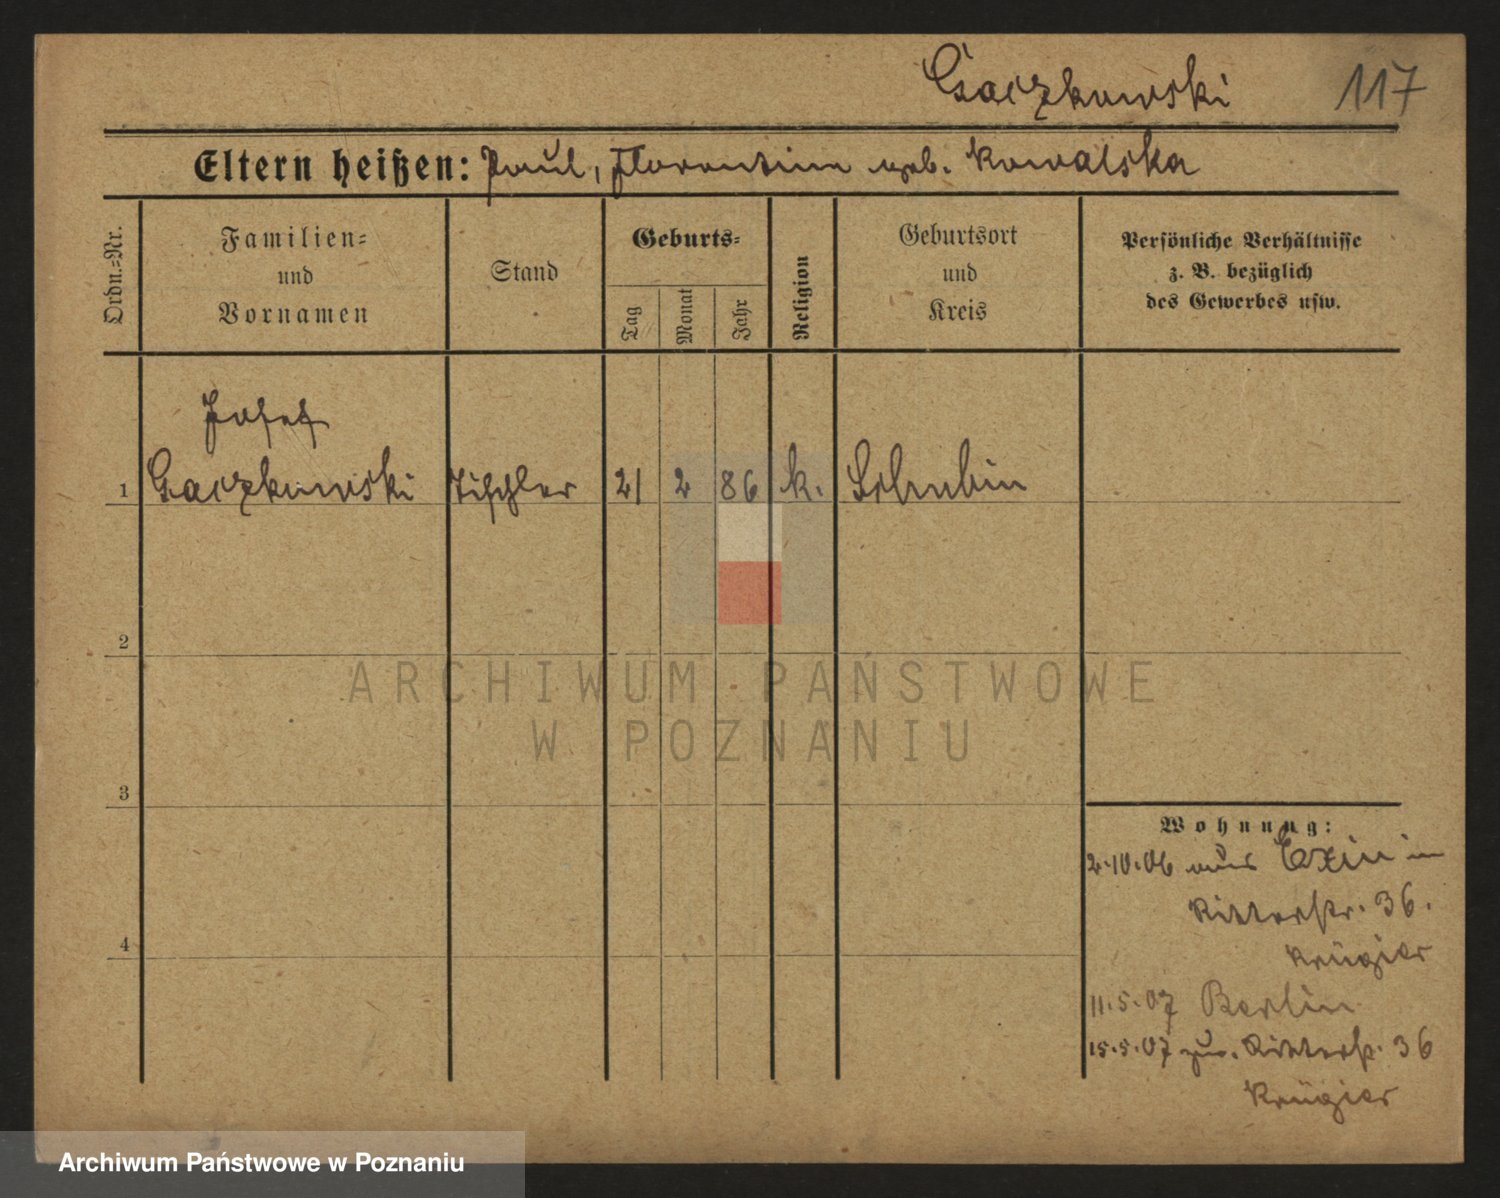 Gaczkowski 117
Eltern heißen: Paul, Florentine geb. Kowalska
Ordn.=Nr.
Familien=
und
Vornamen
Stand
Geburts=
Tag
Monat
Jahr
Religion
Geburtsort
und
Kreis
Persönliche Verhältnisse
z. B. bezüglich
des Gewerbes usw.
Josef
1 Gaczkowski Tischler 21 2 86 k. Schubin
2
ARCHIWUM PAŃSTWOWE
W POZNANIU
3
Wohnung:
2.10.06 aus Exin in
Ritterstr. 36.
Krügier
4
11.5.07 Berlin
15.5.07 zur. Ritterstr. 36
Krügier
Archiwum Państwowe w Poznaniu